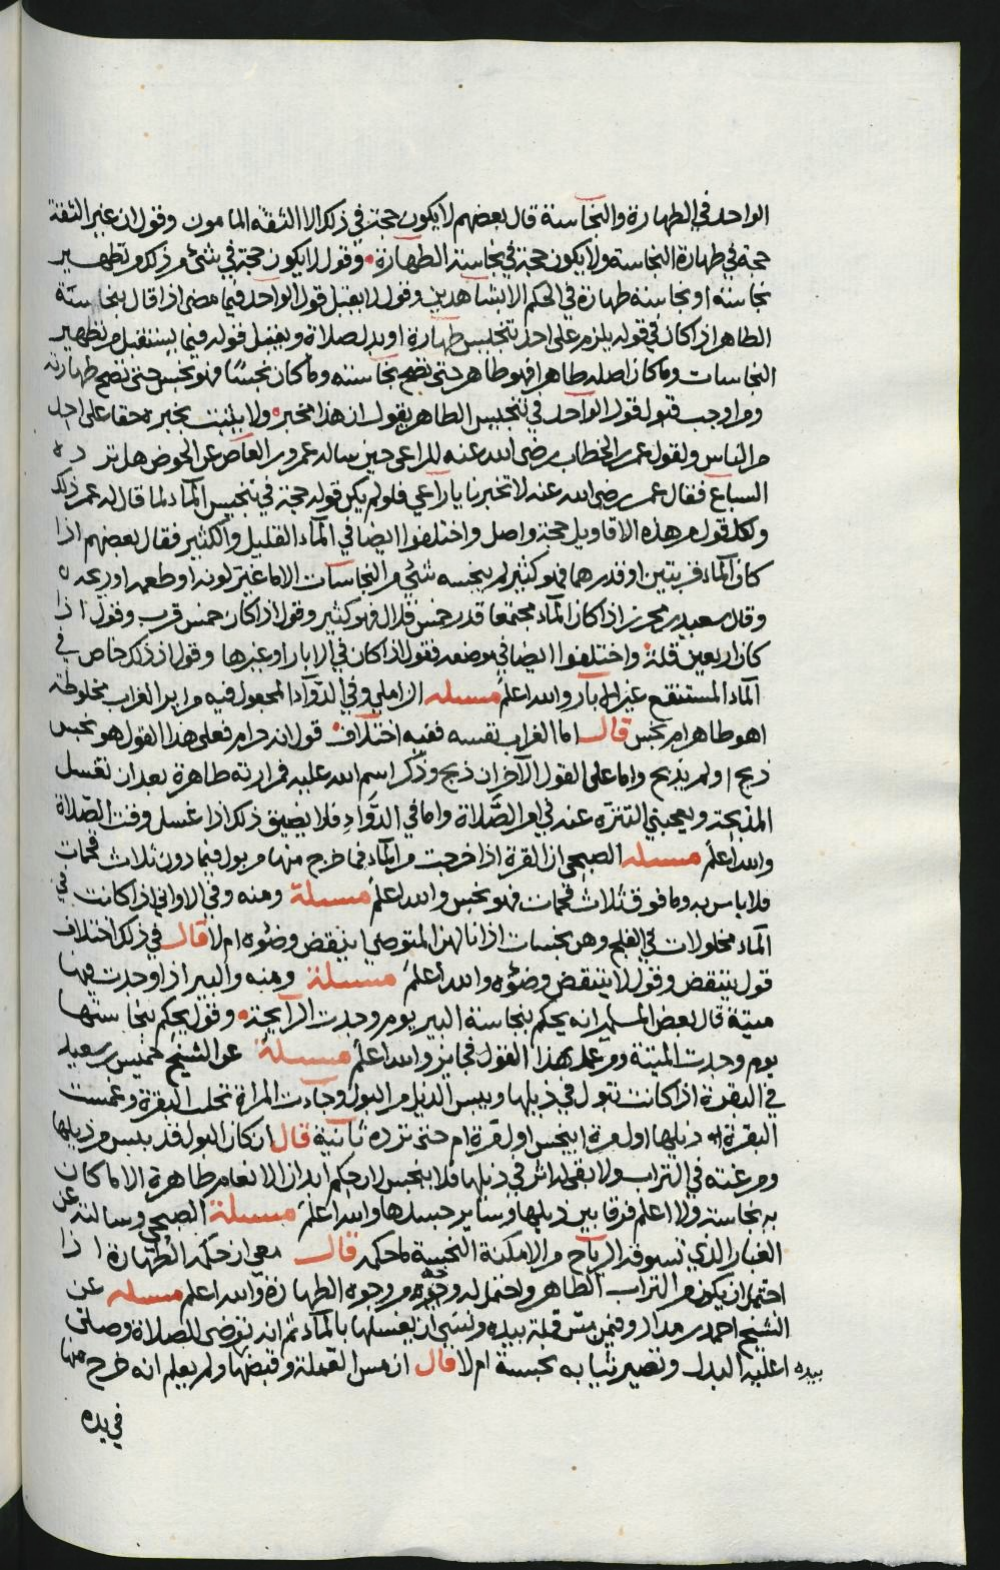 الواحد في الطهارة والنجاسة قال بعضهم لا يكون حجة في ذلك الا الثقة المامون وقول ان غير الثقة
حجة في طهارة النجاسة ولا يكون حجة في نجاسة الطهارة وقول لا يكون حجة في شئ من ذلك وتطهير
نجاسته او نجاسة طهارة في الحكم الا بشاهدين وقول لا يقبل قول الواحد فيما مضى اذا قال بنجاسة
الطاهر اذ كان في قوله يلزم على احد تنجيس طهارة او بدل صلاة ويقبل قوله فيما يستقبل من تطهير
النجاسات وما كان اصله طاهرا فهو طاهر حتى تصح نجاسته وما كان نجسًا فهو نجس حتى تصح طهارته
ومن اوجب قبول قول الواحد في تنجيس الطاهر يقول ان هذا مخبر ولا يثبت بخبره حقا على احد
من الناس ولقول عمر بن الخطاب رضى الله عنه للراعي حين ساله عمرو بن العاص عن الحوض هل ترده
السباع فقال عمر رضى الله عنه لا تخبرنا يا راعي فلو لم يكن قوله حجة في تنجيس المآء لما قال له عمر ذلك
ولكل قول من هذه الاقاويل حجة واصل واختلفوا ايضا في المآء القليل والكثير فقال بعضهم اذا
كان المآء قربتين او قدرهما فهو كثير لم ينجسه شئ من النجاسات الا ما غير لونه او طعمه او ريحه
وقال سعيد بن محرز اذا كان المآء مجتمعا قدر خمس قلال فهو كثير وقول اذا كان خمس قرب وقول اذا
كان اربعين قلة واختلفوا ايضا في موضعه فقول اذا كان في الابار او غيرها وقول ان ذلك خاص في
المآء المستنقع غير الابار والله اعلم مسئله الزاملي وفي الدوآء المجعول فيه مراير الغراب مخلوطة
اهو طاهر ام نجس قال اما الغراب نفسه ففيه اختلاف قول انه حرام فعلى هذا القول هو نجس
ذبح او لم يذبح واما على القول الآخر ان ذبح وذكر اسم الله عليه فمرارته طاهرة بعد ان تغسل
المذبحة ويعجبني التنزه عنه في امر الصَّلاة واما في الدَّوَاءِ فلا يضيق ذلك اذا غسل وقت الصَّلاة
والله اعلم مسئله الصبحي ان القرة اذا خرجت من المآء فما خرج منها من بول فيما دون ثلاث قحمات
فلا باس به وما فوق ثلاث قحمات فهو نجس والله اعلم مسئلة ومنه وفي الاواني اذا كانت فيها
المآء مخلولات في الفلج وهن نجسات اذا نالهن المتوضي اينقض وضوءه ام لا قال في ذلك اختلاف
قول ينتقض وقول لا ينتقض وضوءه والله اعلم مسئلة ومنه والبير اذا وجدت فيها
ميتة قال بعض المسلمين انه يحكم بنجاسة البير يوم وجدت الرايحة وقول يحكم بنجاستها
يوم وجدت الميتة ومن عمل بهذا القول فجايز والله اعلم مسئلة عن الشيخ خميس بن سعيد
في البقرة اذا كانت تبول في ذيلها ويبس الذيل من البول وجاءت المراة تحلب البقرة وغمست
البقرة ذيلها اول مرة اينجس اول قرة ام حتى ترده ثانية قال ان كان البول قد يبس من ذيلها
ومرغته في التراب ولا بقي له اثر في ذيلها فلا ينجس لان حكم ابدان الانعام طاهرة الا ما كان
به نجاسة ولا اعلم فرقا بين ذيلها وساير جسدها والله اعلم مسئلة الصبحي وسالته عن
الغبار الذي تسوقه الرياح من الامكنة النجسة ما حكمه قال معي ان حكمه الطهارة اذا
احتمل ان يكون من التراب الطاهر واحتمل له وجه من وجوه الطهارة والله اعلم مسئله عن
الشيخ احمد بن مداد وفيمن مسّ قملة بيده ونسي ان يغسلها بالمآء ثم انه توضى للصلاة وصلى
بيده اعليه البدل وتصير ثيابه نجسة ام لا قال ان مس القملة وقبضها ولم يعلم انه خرج منها
في يده